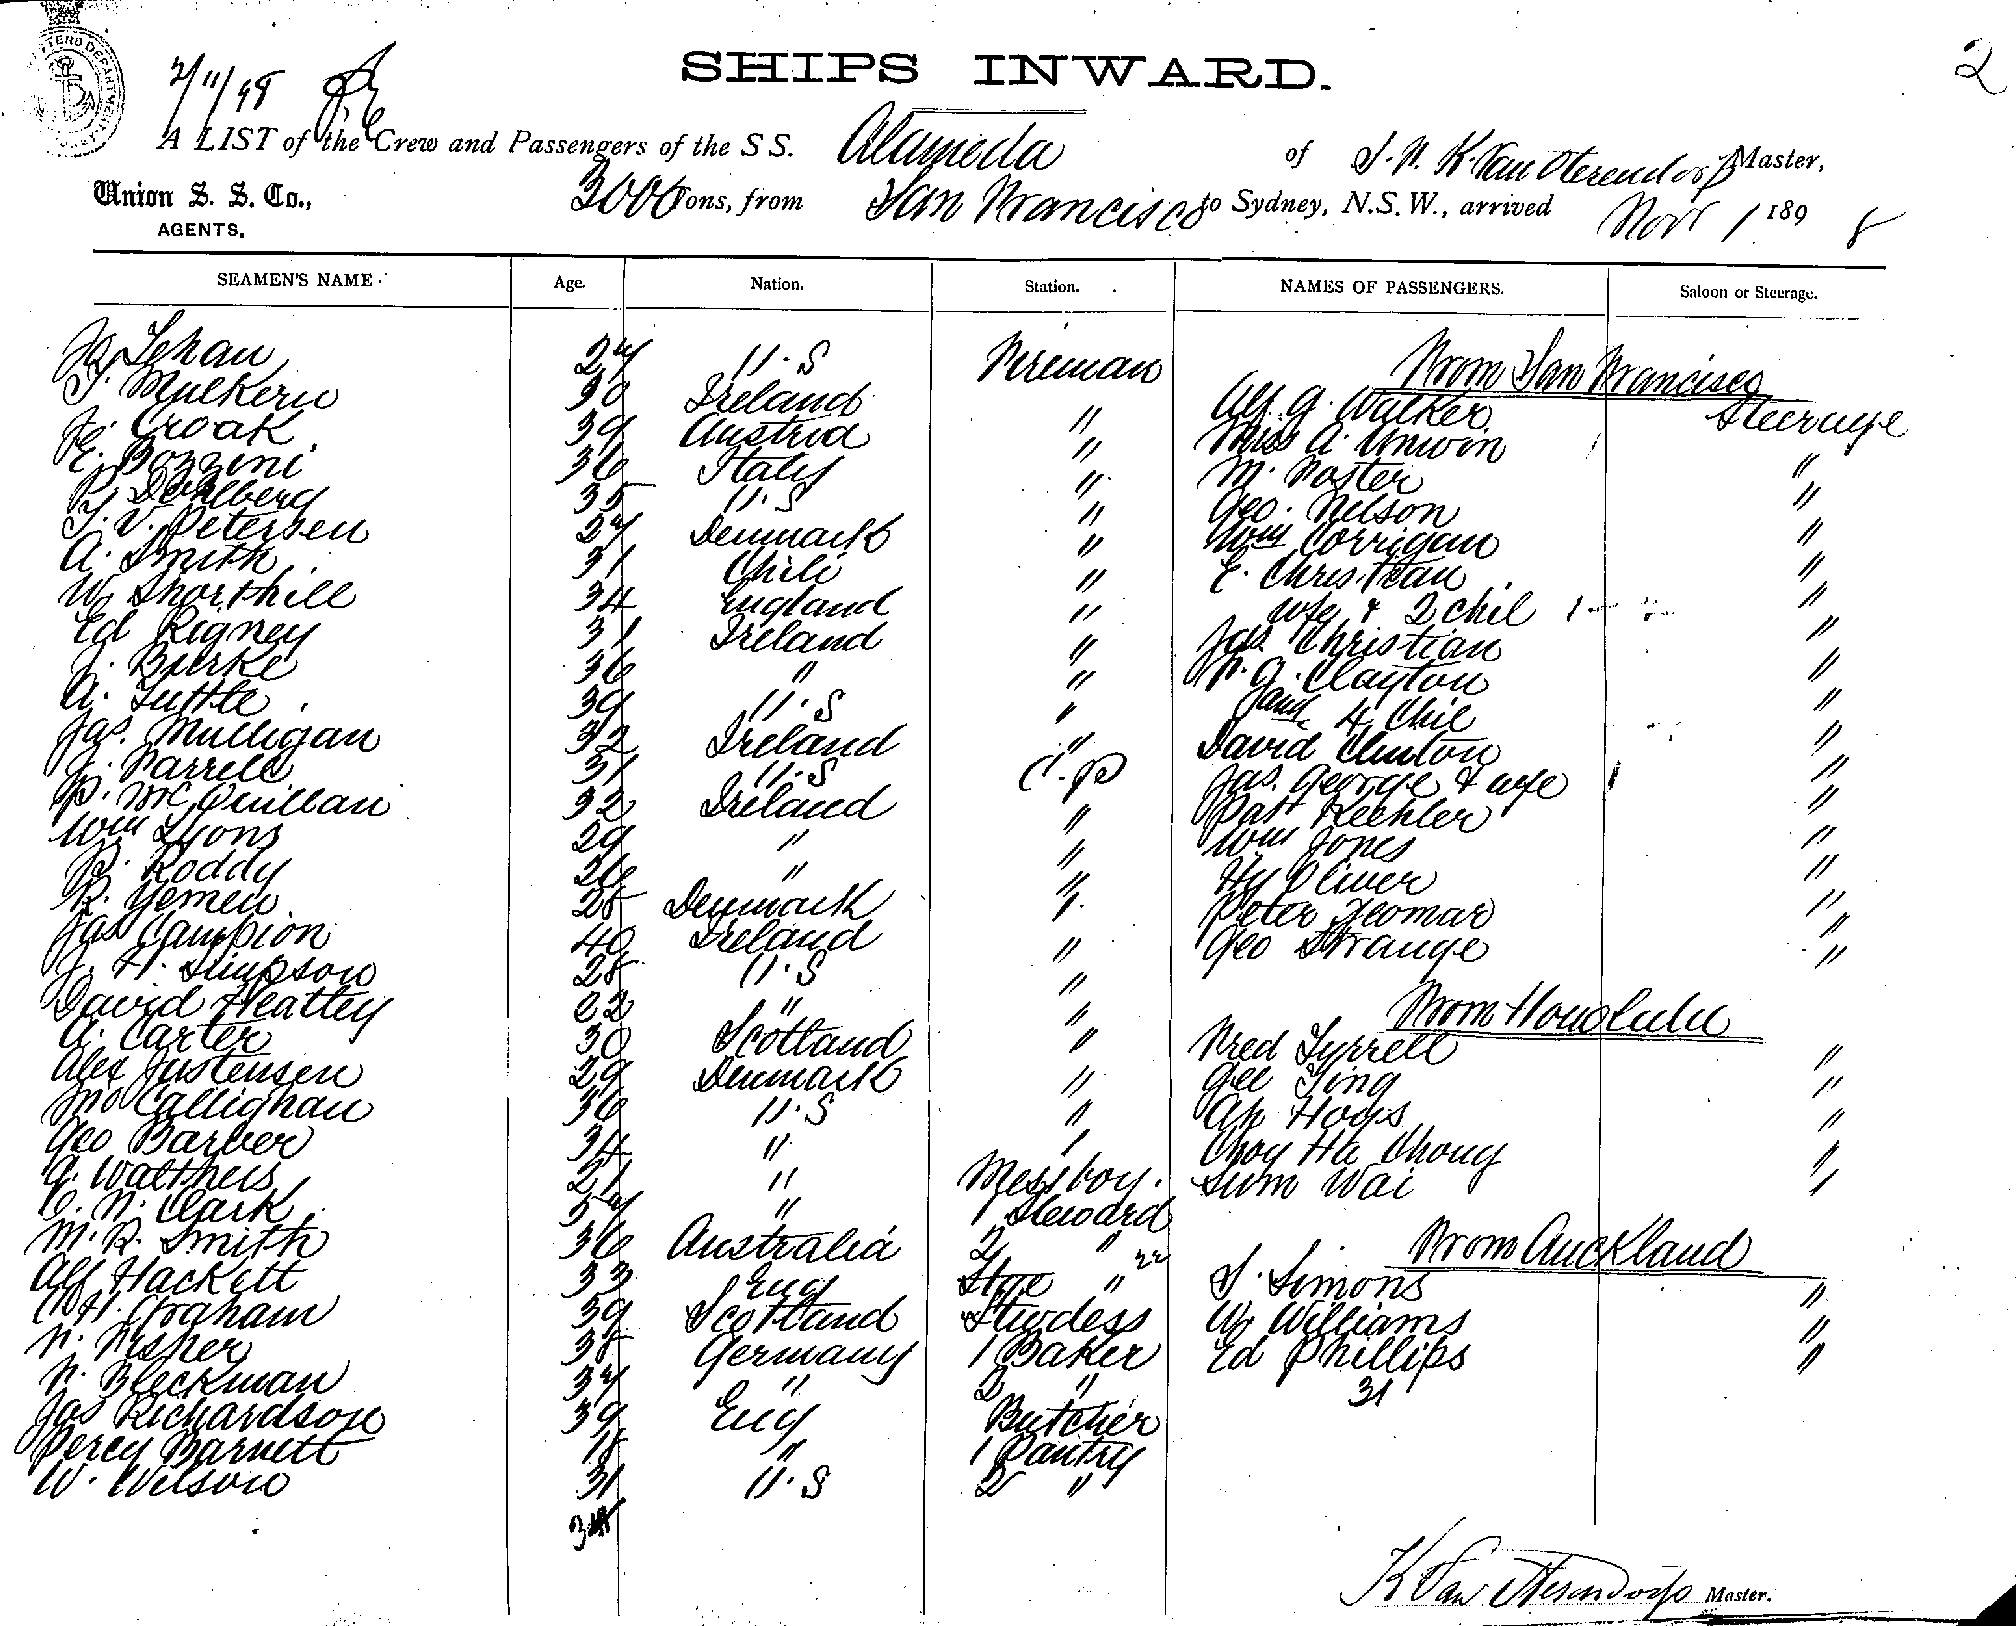 2/11/98
SHIPS INWARD.
2
A LIST of the Crew and Passengers of the SS. Alameda of S.F. K. Van Oterendorp Master,
Union S. S. Co.,
AGENTS.
3000 Tons, from San Francisco to Sydney, N.S.W., arrived Novr 1 1898
SEAMEN'S NAME. Age. Nation. Station. NAMES OF PASSENGERS. Saloon or Steerage.
Lehan 27 U.S Fireman From San Francisco
Mulkern 30 Ireland " Alf. G. Walker Steerage
Croak 39 Austria " Miss A. Unwin "
E. Bozzini 36 Italy " M. Foster "
Dahlberg 35 U.S " Geo. Nelson "
Petersen 27 Denmark " Wm Corrigan "
A. Smith 31 Chili " E. Christian "
W. Shorthill 34 England " wife & 2 chil "
Ed Rigney 31 Ireland " Jas. Christian "
J. Burke 36 " " F. G. Clayton "
A. Tuttle 39 U.S " and 4 Chil "
Jas. Mulligan 32 Ireland " David Clinton "
J. Farrell 31 U.S C.P Jas. George & wife "
P. McQuillan 32 Ireland " Patk Keehler "
Wm Lyons 29 " " Wm Jones "
P. Roddy 26 " " Hy Oliver "
R. Yemen 28 Denmark " Peter Yeomar "
Jas Campion 40 Ireland " Geo Strange "
J. H. Simpson 28 U.S "
David Heatley 22 " " From Honolulu
A. Carter 30 Scotland " Fred Tyrrell "
Alex Justensen 29 Denmark " Gee Ting "
Jno Callighan 36 U.S " Ah Hoys "
Geo Barber 34 " " Choy Ha Chong "
A. Walthers 21 " Messboy. Sum Wai "
C. F. Clark 37 " 1 Steward
M. R. Smith 36 Australia 2 " From Auckland
Alf Hackett 33 Eng Stge " S. Simons "
Graham 39 Scotland Stwdess W. Williams "
F. Fisher 38 Germany 1 Baker Ed Phillips "
F. Bleckman 37 " 2 " 31
Jas Richardson 39 Eng Butcher
Percy Barnett 18 " 1 Pantry
W. Wilson 31 U.S 2 "
34
K Van Oterendorp Master.